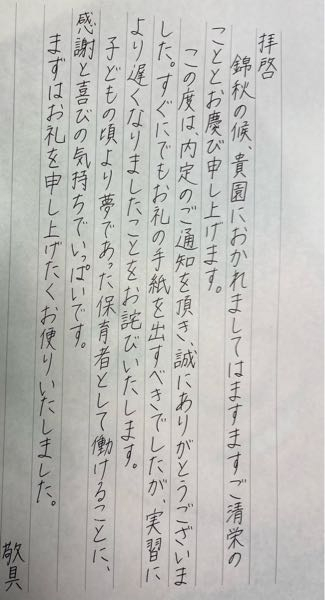 拝啓
錦秋の候、貴園におかれましてはますますご清栄の
こととお慶び申し上げます。
この度は、内定のご通知を頂き、誠にありがとうございま
した。すぐにでもお礼の手紙を出すべきでしたが、実習に
より遅くなりましたことをお詫びいたします。
子どもの頃より夢であった保育者として働けることに、
感謝と喜びの気持ちでいっぱいです。
まずはお礼を申し上げたくお便りいたしました。
敬具